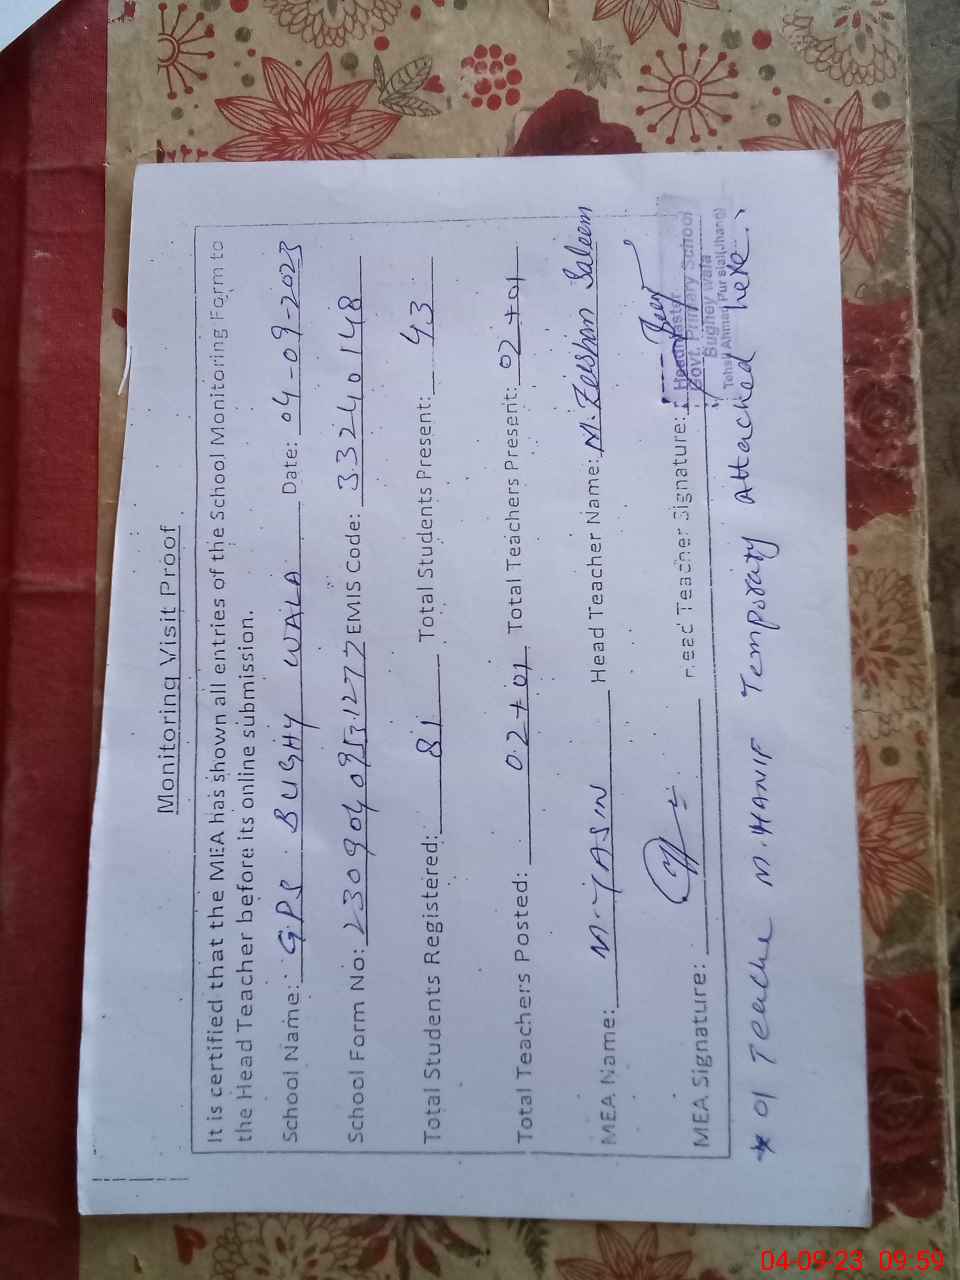 Monitoring Visit Proof
It is certified that the MEA has shown all entries of the School Monitoring Form to
the Head Teacher before its online submission.
School Name: GPS BUGHY WALA Date: 04-09-2023
School Form No: EMIS Code: 33240148
Total Students Registered: 81 Total Students Present: 43
Total Teachers Posted: 02+01 Total Teachers Present: 02+01
MEA Name: M. YASIN Head Teacher Name: M. Zeeshan Saleem
MEA Signature: Head Teacher Signature:
Headmaster
Govt. Primary School
Bughey wala
Tehsil Ahmad Pur sial(Jhang)
* 01 Teache M. HANIF Temporary Attached here.
04-09-23 09:59